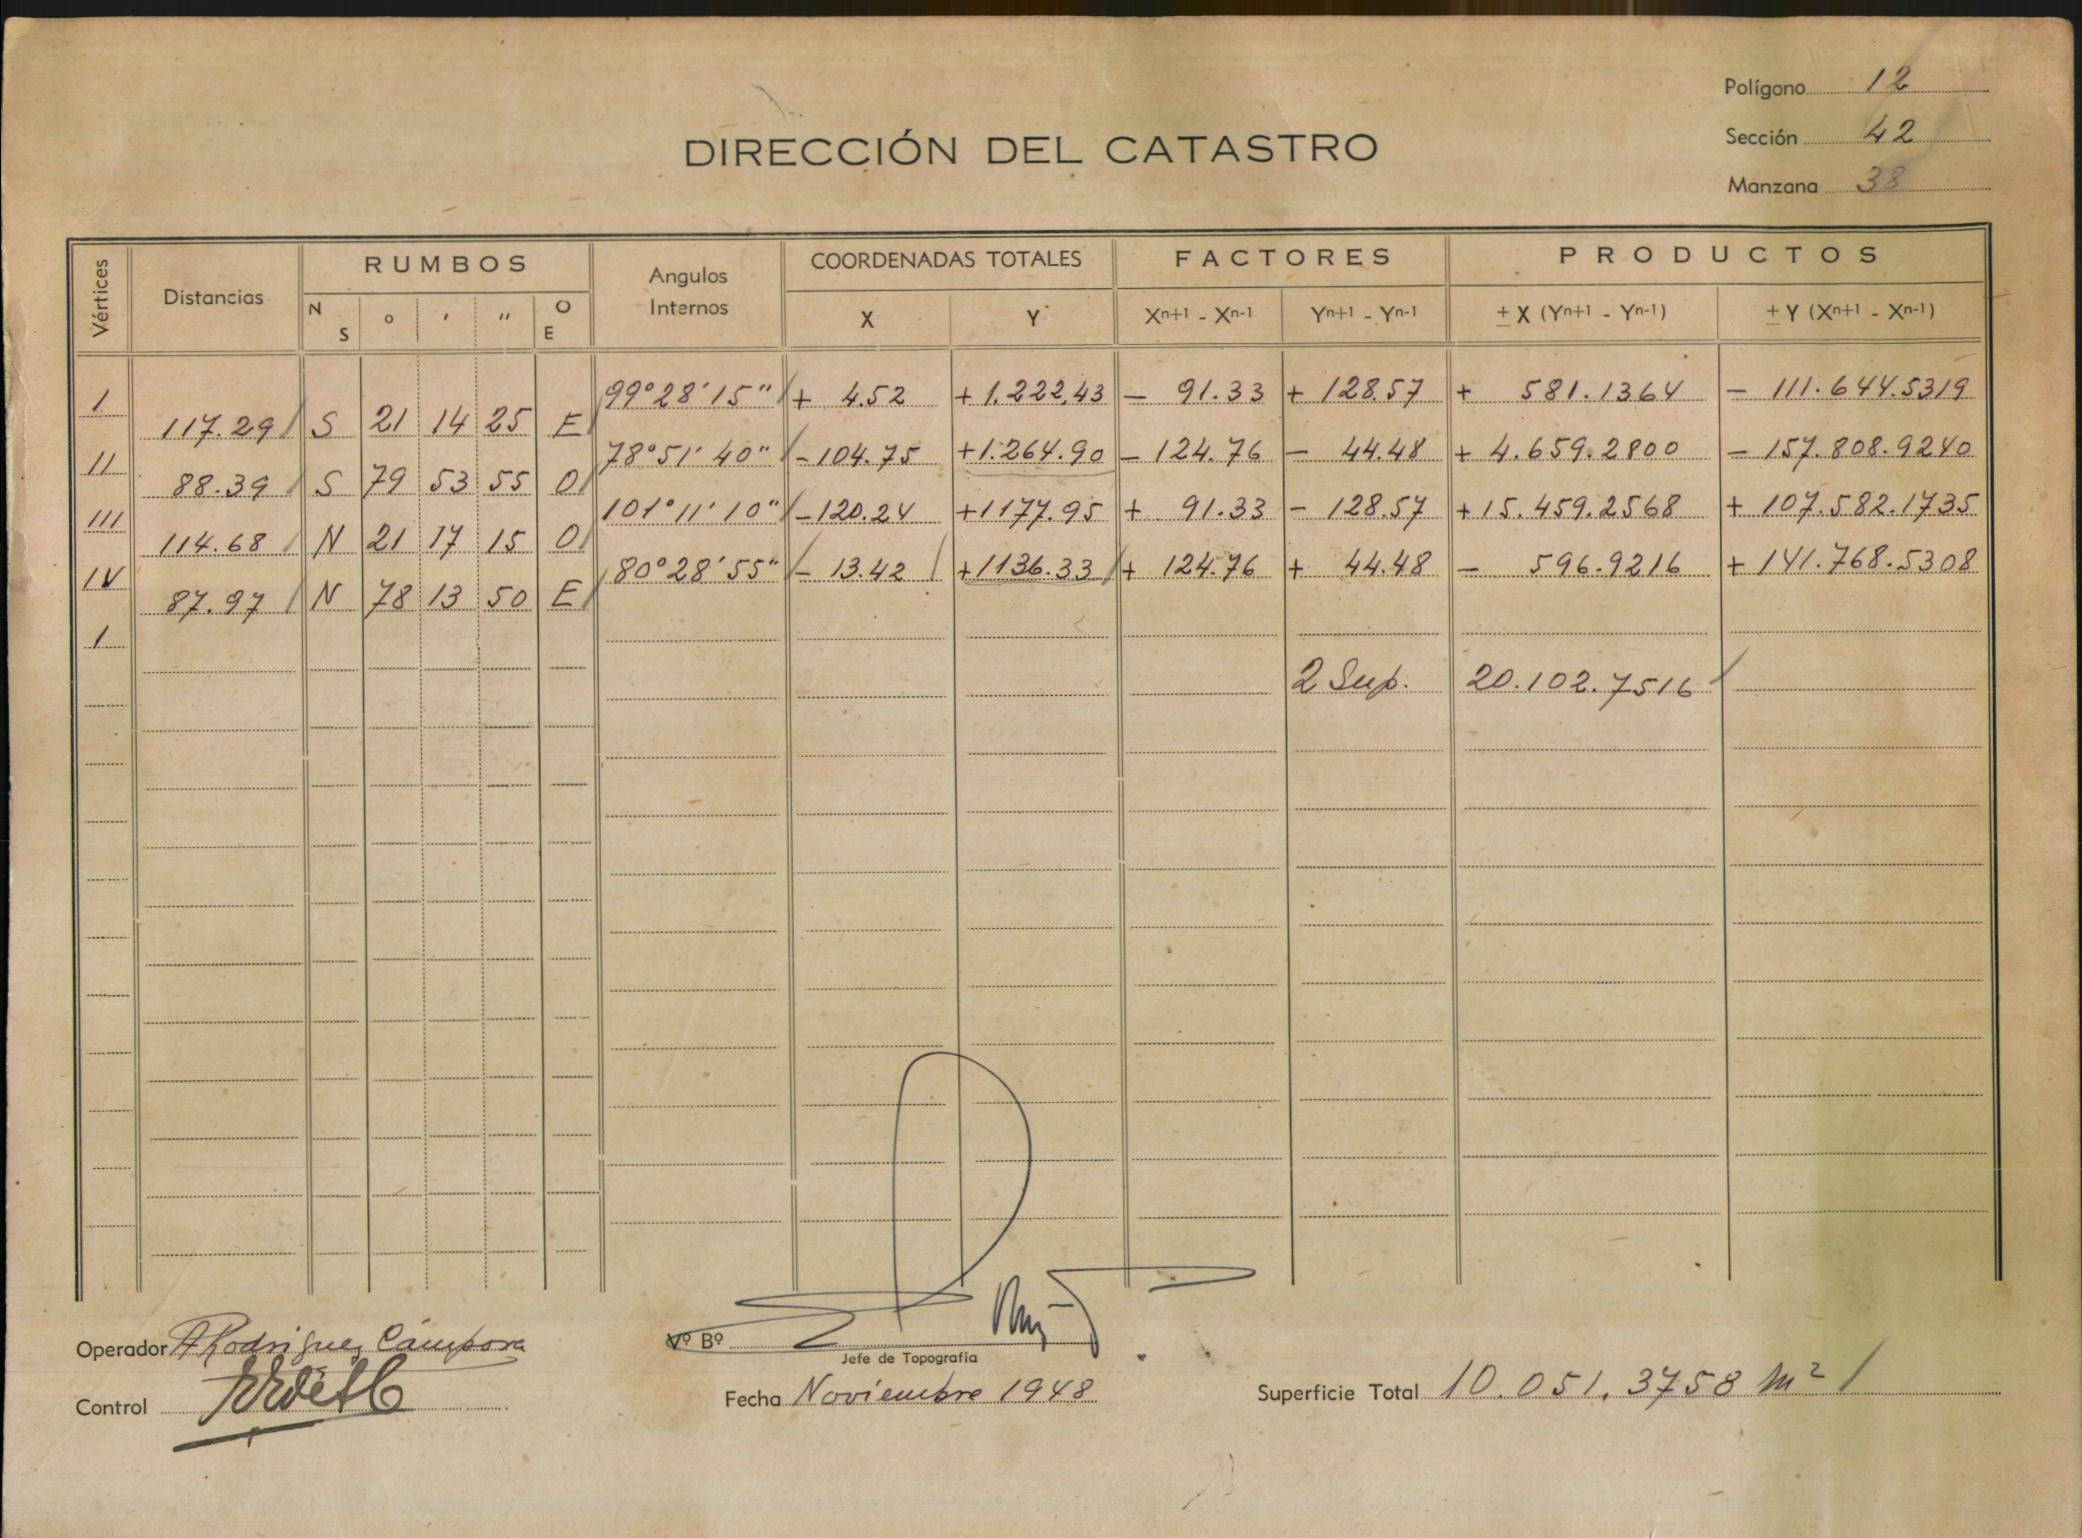 Polígono 12
DIRECCIÓN DEL CATASTRO
Sección 42
Manzana 38
Vértices Distancias RUMBOS Angulos Internos COORDENADAS TOTALES FACTORES PRODUCTOS
N S ° ' " O E X Y Xn+1 - Xn-1 Yn+1 - Yn-1 ± X (Yn+1 - Yn-1) ± Y (Xn+1 - Xn-1)
I 99°28'15" + 4.52 + 1.222,43 - 91.33 + 128.57 + 581.1364 - 111.644.5319
117.29 S 21 14 25 E
II 78°51'40" - 104.75 + 1.264.90 - 124.76 - 44.48 + 4.659.2800 - 157.808.9240
88.39 S 79 53 55 O
III 101°11'10" - 120.24 + 1177.95 + 91.33 - 128.57 + 15.459.2568 + 107.582.1735
114.68 N 21 17 15 O
IV 80°28'55" - 13.42 + 1136.33 + 124.76 + 44.48 - 596.9216 + 141.768.5308
87.97 N 78 13 50 E
I
2 Sup. 20.102.7516
Operador A Rodriguez Cámpora
Vº Bº
Jefe de Topografía
Control
Fecha Noviembre 1948
Superficie Total 10.051.3758 m²